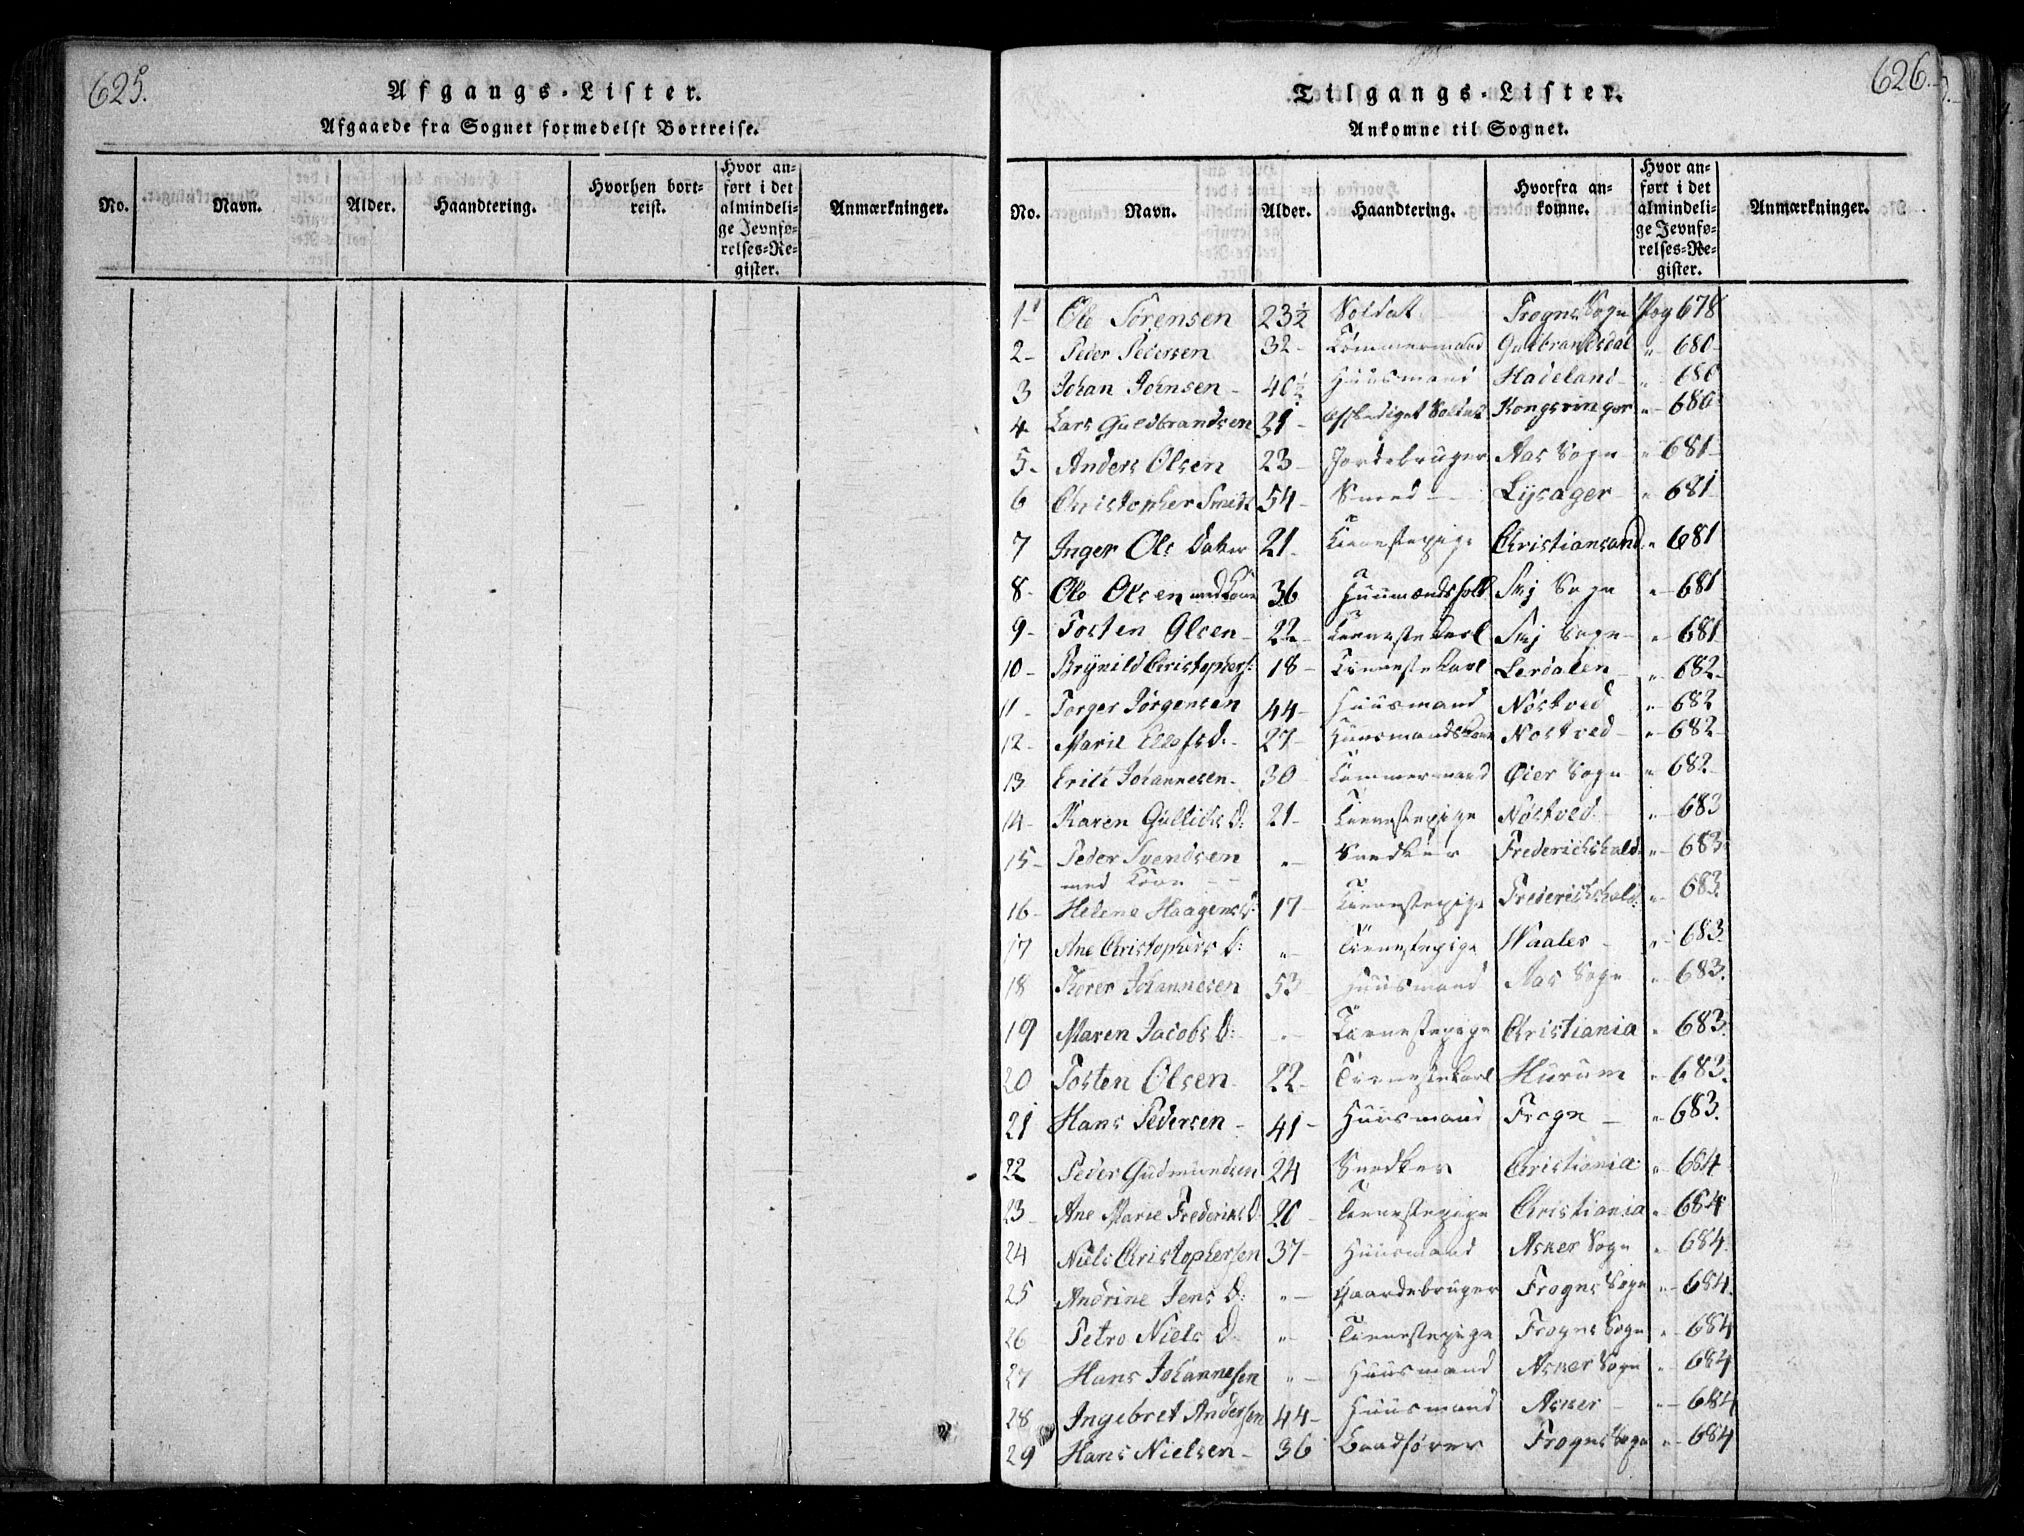 625.
Afgangs-Lister.
Afgaaede fra Sognet formedelst Bortreise.
No. Navn. Alder. Haandtering. Hvorhen bortreist. Hvor anført i det almindelige Jevnførelses-Register. Anmærkninger.
626.
Tilgangs-Lister.
Ankomne til Sognet.
No. Navn. Alder. Haandtering. Hvorfra ankomne. Hvor anført i det almindelige Jevnførelses-Register. Anmærkninger.
1 Ole Sørensen 23½ Soldat Frogns Sogn Pag 678
2 Peder Pedersen 32 Tømmermand Gulbrandsdal " 680
3 Johan Johnsen 40½ Huusmand Hadeland " 680
4 Lars Guldbrandsen 31 Afskediget Soldat Kongsvinger " 680
5 Anders Olsen 23 Jordebruger Aas Sogn " 681
6 Christopher Smidt 54 Smed Lysager " 681
7 Inger Ols Datter 21 Tienestepige Christiansand " 681
8 Ole Olsen med Kone 36 Huusmandsfolk Sogn " 681
9 Tosten Olsen 22 Tienestekarl Sogn " 681
10 Brynild Christophers: 18 Tienestekarl Lerdalen " 682
11 Torger Jørgensen 44 Huusmand Nøstved " 682
12 Marie D. 27 Huusmandskone Nøstved " 682
13 Erich Johannesen 30 Tømmermand Øier Sogn " 682
14 Karen Gullichs D: 21 Tienestepige Nøstved " 683
15 Peder Svendsen " Snedker Frederichshald " 683
med Kone
16 Helene Haagens D: 17 Tienestepige Frederichshald " 683
17 Ane Christophers D: " Tienestepige Waaler " 683.
18 Johannesen 53 Huusmand Aas Sogn " 683.
19 Maren Jacobs D: " Tienestepige Christiania " 683.
20 Tosten Olsen 22 Tienestekarl Hurum " 683.
21 Hans Pedersen 41 Huusmand Frogn " 683.
22 Peder Gudmundsen 24 Snedker Christiania " 684
23 Ane Marie Frederiks D. 20 Tienestepige Christiania " 684
24 Niels Christophersen 37 Huusmand Asker Sogn " 684.
25 Andrine Jens D: " Gaardebruger Frogns Sogn " 684.
26 Petro Niels D. " Tienestepige Frogns Sogn " 684
27 Hans Johannesen " Huusmand Asker Sogn " 684
28 Ingebret Andersen 44 Huusmand Asker " 684
29 Hans Nielsen 36 Baadfører Frogns Sogn " 684